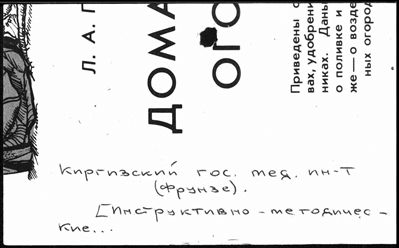 Л. А. П
ДОМА
ОГО
Приведены с
вах, удобрени
никах. Даны
о поливке и
же — о возде
ных огород
Киргизский гос. мед. ин-т
(Фрунзе).
[Инструктивно-методичес-
кие...